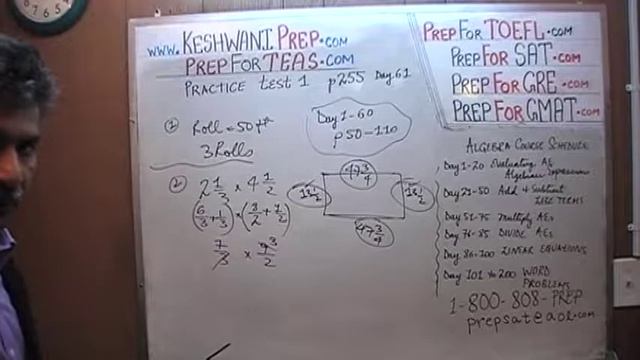 www.KESHWANIPREP.com
PREPFORTEAS.com
PRACTICE test 1 p255 Day 61
① Roll = 50 ft
3 Rolls
Day 1-60
p50-110
② 2 1/3 × 4 1/2
(6/3 + 1/3) × (8/2 + 1/2)
7/3 × 9/2
3
47 3/4
18 1/2
18 1/2
47 3/4
PREPFORTOEFL.com
PREPFORSAT.com
PREPFORGRE.com
PREPFORGMAT.com
ALGEBRA COURSE SCHEDULE
Day 1-20 Evaluating
Algebraic Expressions
Day 21-50 Add & Subtract
LIKE TERMS
Day 51-75 Multiply AEs
Day 76-85 DIVIDE AEs
Day 86-100 LINEAR EQUATIONS
Day 101 to 200 WORD
PROBLEMS
1-800-808-PREP
prepsat@aol.com